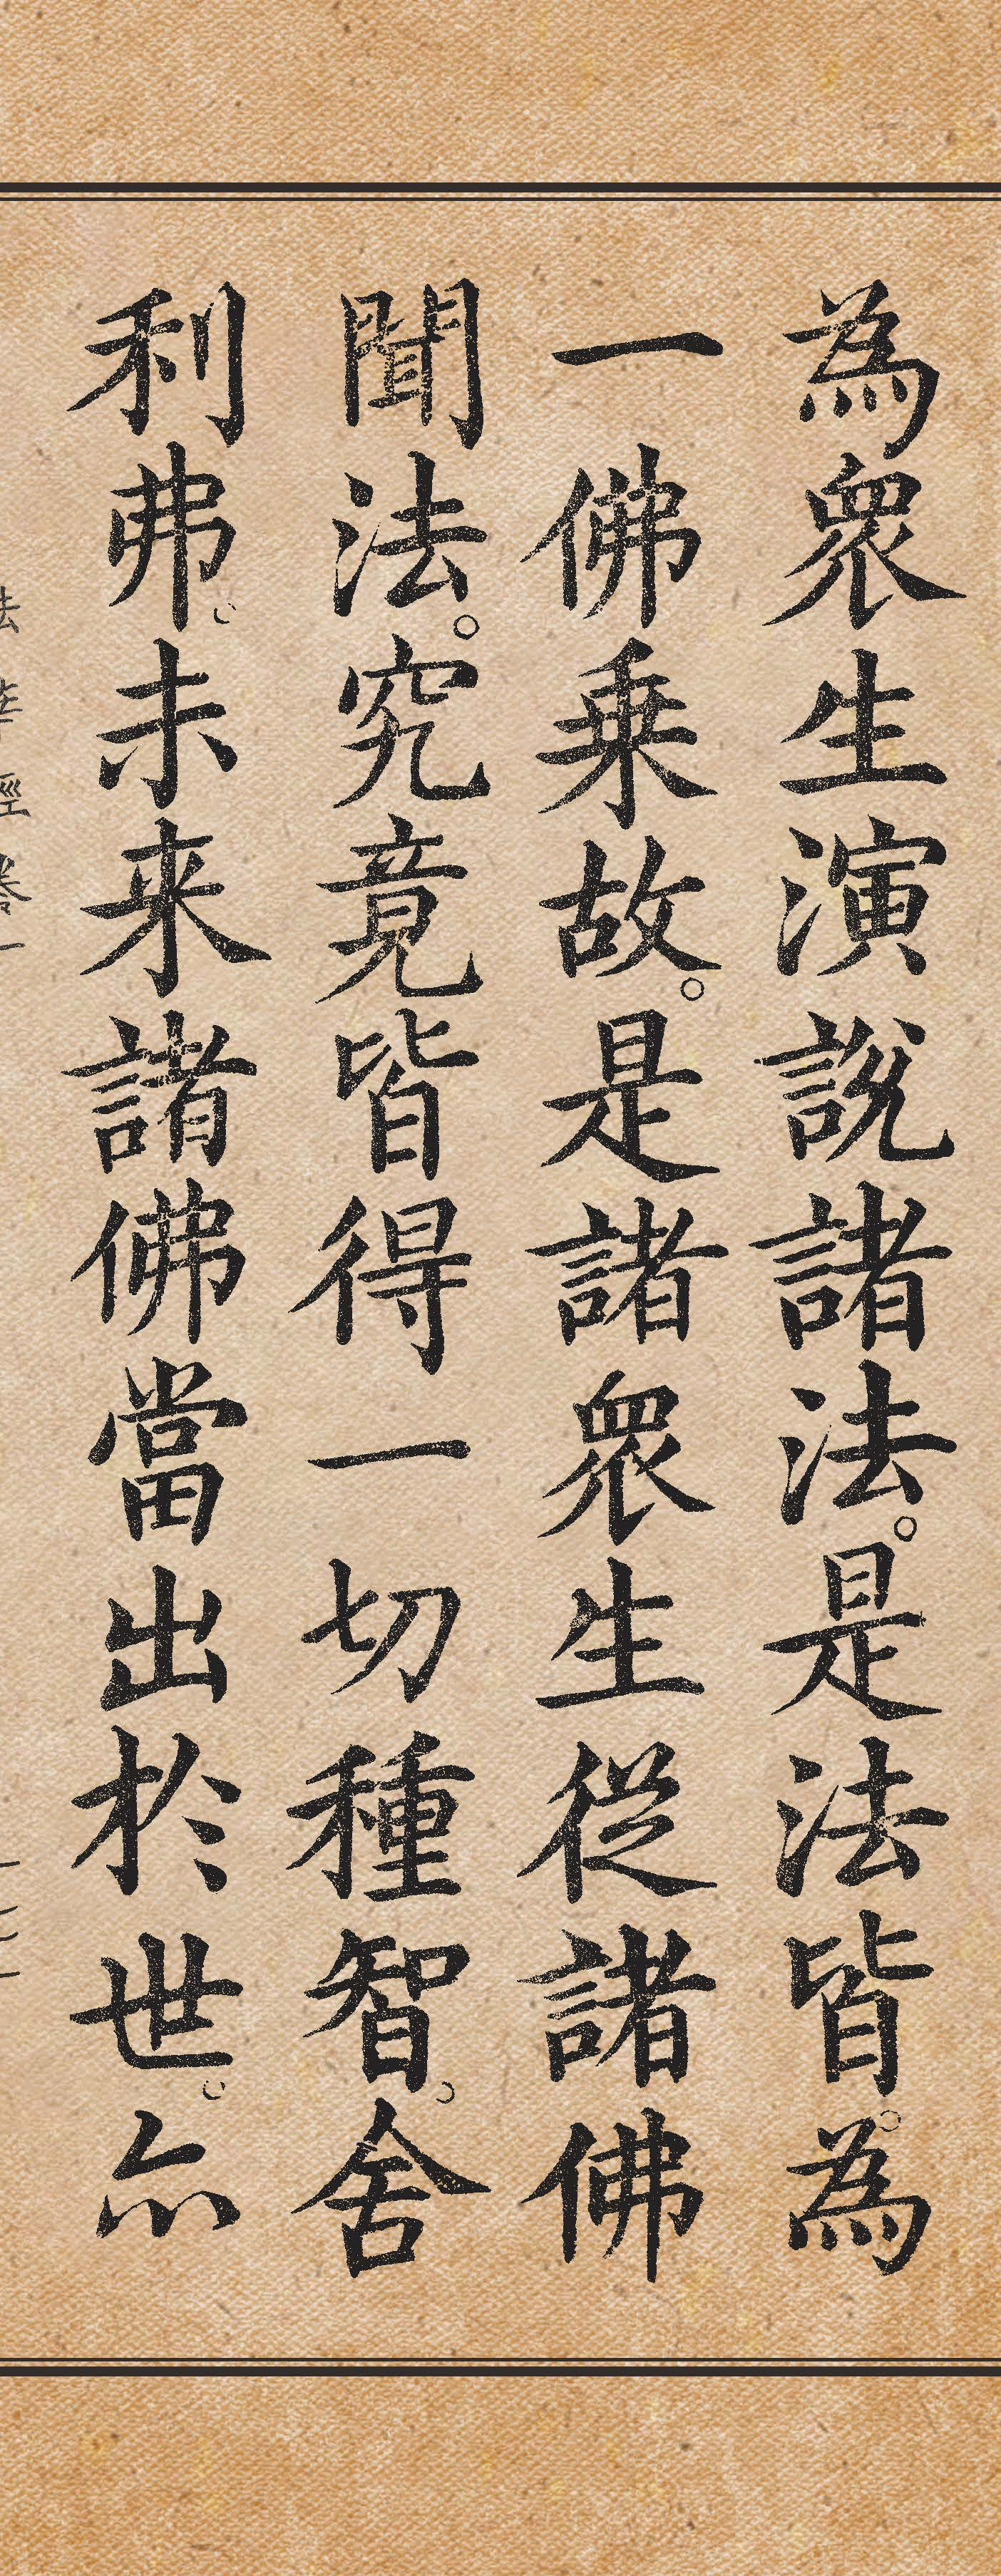 為衆生演說諸法。是法皆。為
一佛乗故。是諸衆生從諸佛
聞法。究竟皆得一切種智。舍
利弗。未来諸佛當出於世。亦
法華經卷一